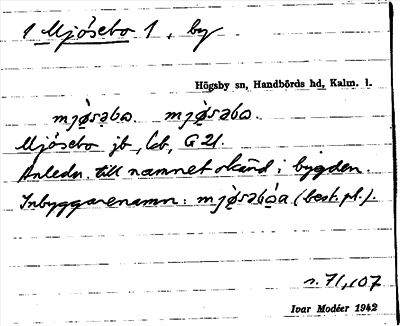 1 Mjösebo 1, by
Högsby sn, Handbörds hd, Kalm. l.
mjǿ̀səbo. mjǿ̀səbo.
Mjösebo jb, Gb, G 21.
Anledn. till namnet okänd i bygden.
Inbyggarenamn: mjǿ̀səbòa (best. pl.).
s. 71, 107
Ivar Modéer 1942